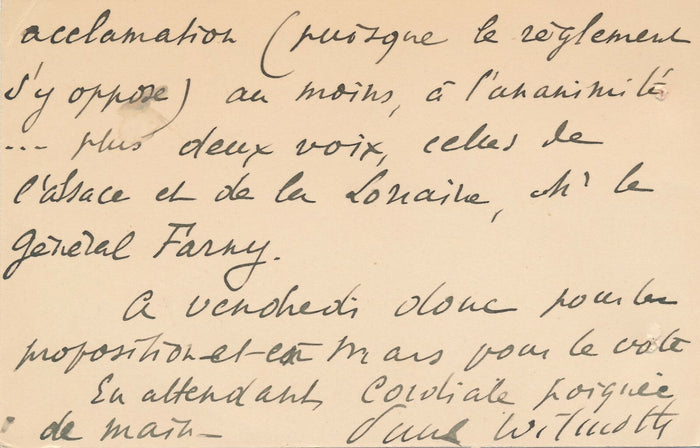 acclamation (puisque le règlement
s'y oppose) au moins, à l'unanimité
... plus deux voix, celles de
l'Alsace et de la Lorraine, Mr le
Général Farny.
A vendredi donc pour la
proposition et en Mars pour le vote
En attendant, Cordiale poignée
de main -